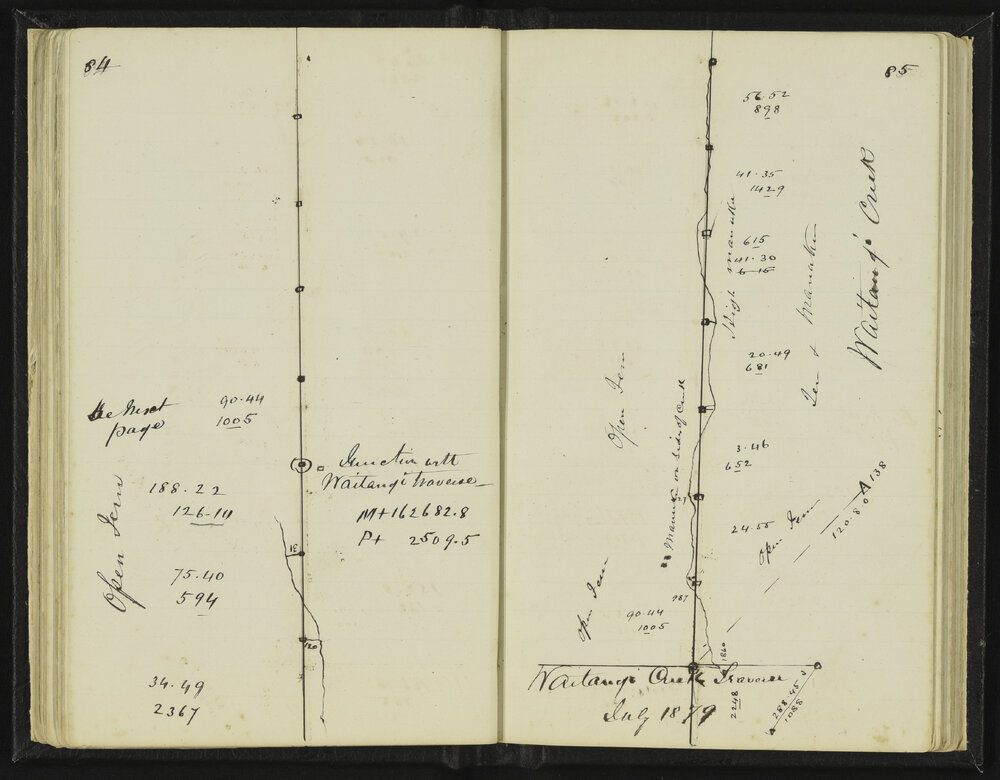 84
See Next
page
90.44
1005
Junction with
Waitangi traverse
M+162682.8
P+ 2509.5
188.22
126.14
Open Fern
18
75.40
594
120
34.49
2367
85
56.52
898
41.35
1429
615
41.30
615
High manuka
Fern & Manuka
Waitangi Creek
20.49
681
Open Fern
Manuka on side of Creek
3.46
652
24.55
Open Fern
120.80
138
Open Fern
987
90.44
1005
1860
Waitangi Creek Traverse
July 1879
2248
288.45
1088